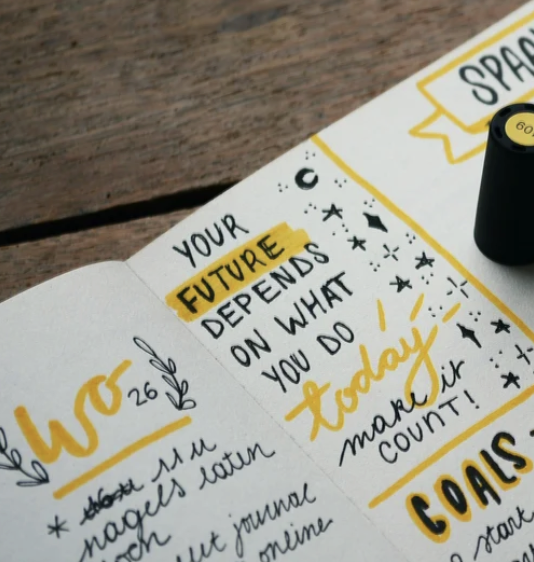 SPAC
601
YOUR
FUTURE
DEPENDS
ON WHAT
YOU DO
today
make it
COUNT!
GOALS
start
Wo
26
* 11 u
nagels laten
journal
online